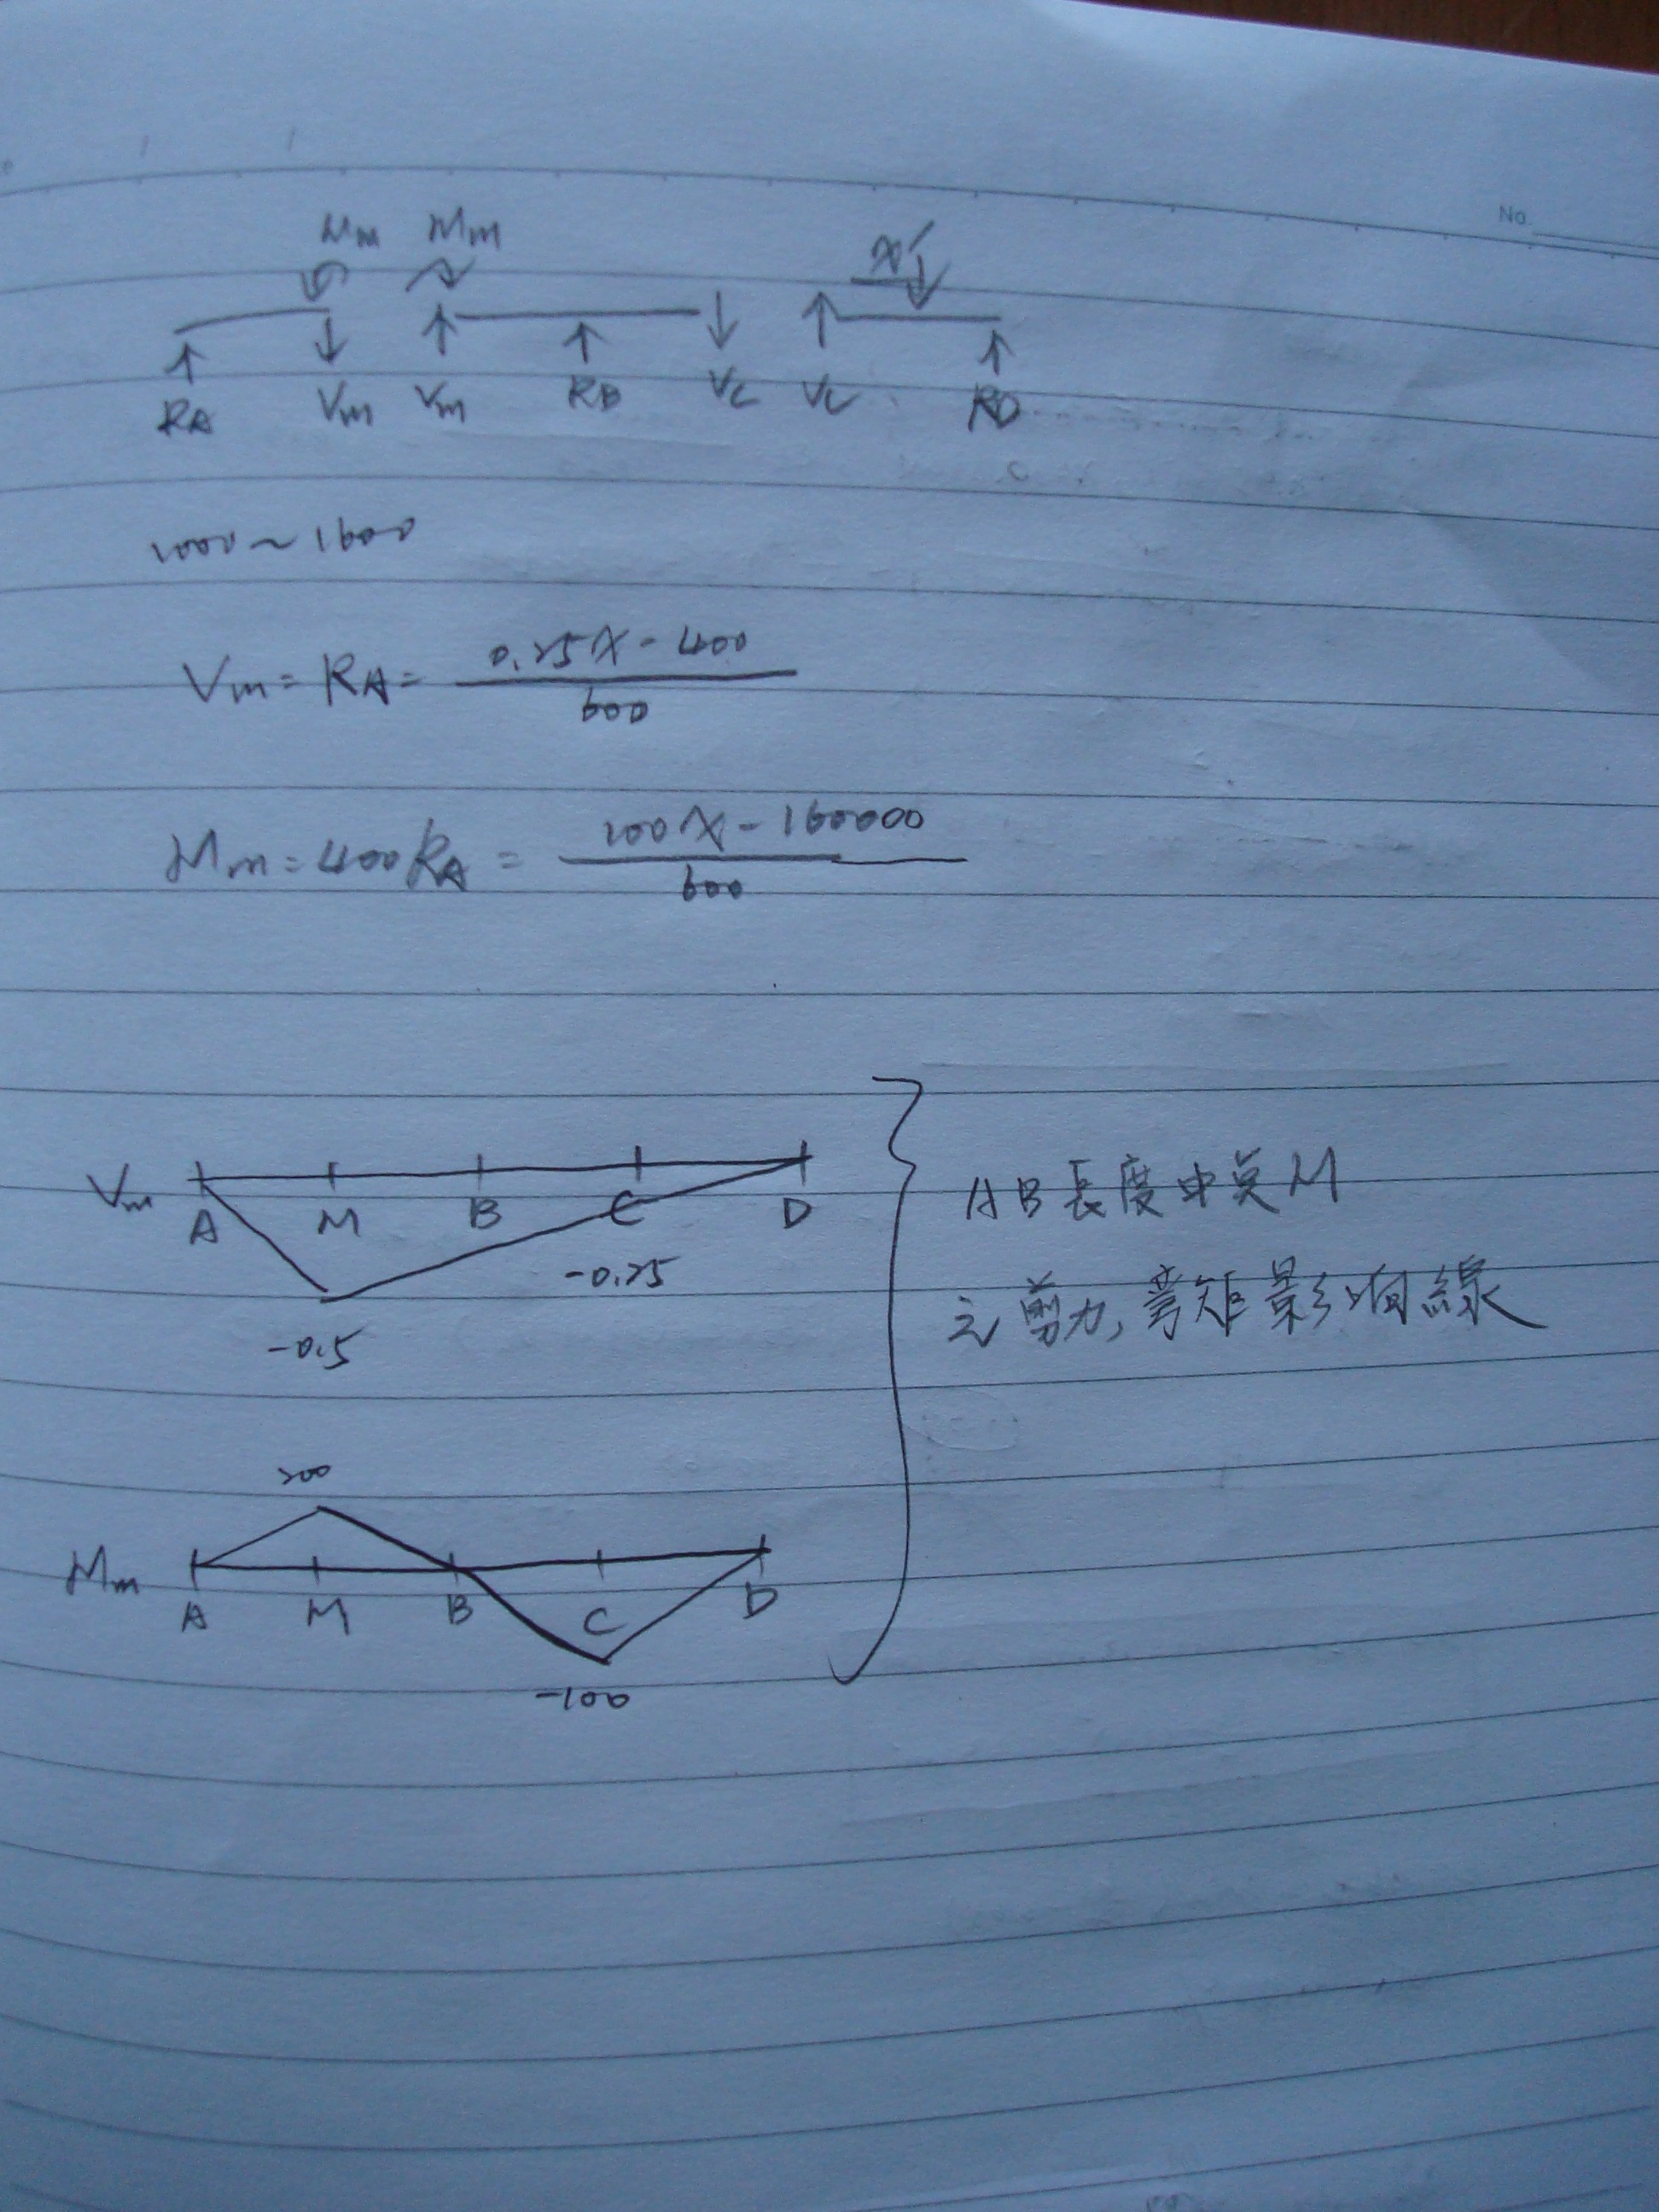 No.
Mm Mm x
RA Vm Vm RB Vc Vc RD
1000~1600
Vm = RA = 0.25X - 400 / 600
Mm = 400RA = 100X - 160000 / 600
Vm A M B C D
-0.25
-0.5
AB長度中点M
之剪力,彎矩影响線
200
Mm A M B C D
-100